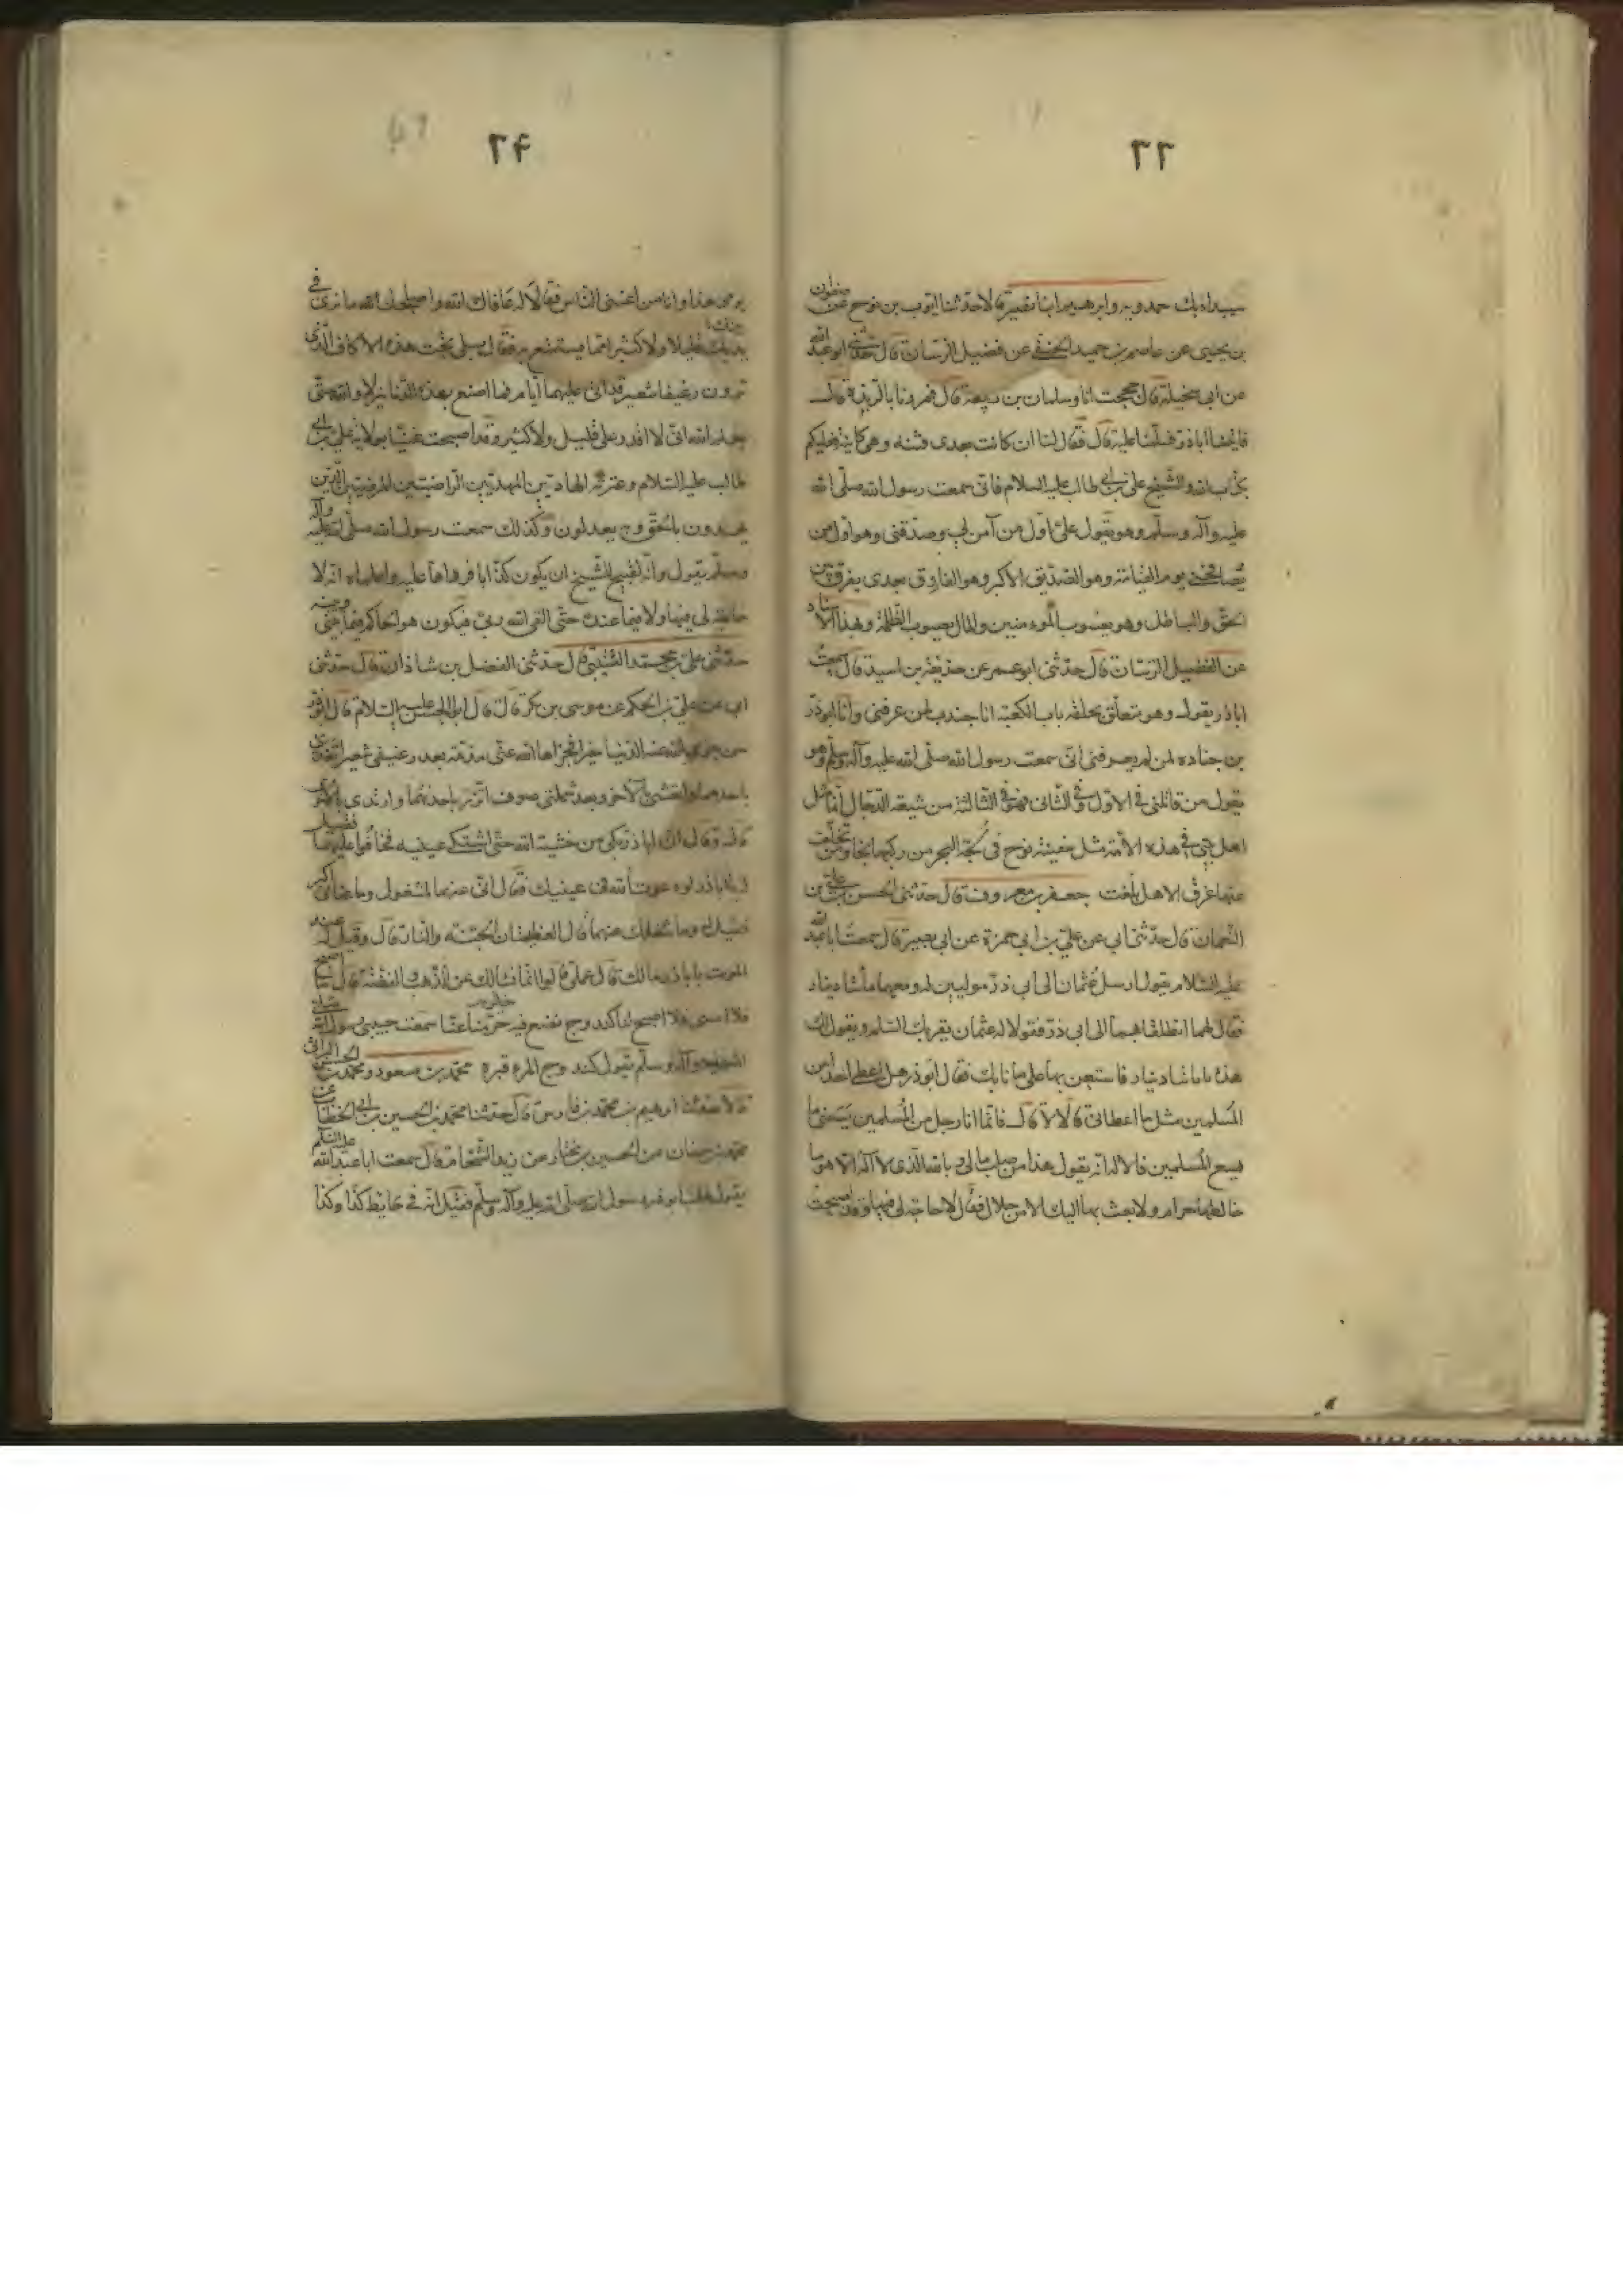 ٢٣
سيدادبك حمدويه وابرهيم ابنا نصير قالا حدثنا ايوب بن نوح عن صفوان
بن يحيى عن عاصم بن حميد الحنفى عن فضيل الرسان قال حدثنى ابو عبد الله
عن ابى سخيلة قال حججت انا وسلمان بن ربيعة قال فمررنا بالربذة قال
فاتينا اباذر فسلمنا عليه قال فقال لنا ان كانت بعدى فتنة وهى كائنة فعليكم
بكتاب الله والشيخ على بن ابى طالب عليه السلام فانى سمعت رسول الله صلى الله
عليه وآله وسلم وهو يقول على اول من آمن بى وصدقنى وهو اول من
يصافحنى يوم القيامة وهو الصديق الاكبر وهو الفاروق بعدى يفرق بين
الحق والباطل وهو يعسوب المؤمنين والمال يعسوب الظلمة وبهذا الاسناد
عن الفضيل الرسان قال حدثنى ابو عمر عن حذيفة بن اسيد قال سمعت
اباذر يقول وهو متعلق بحلقة باب الكعبة انا جندب لمن عرفنى وانا ابوذر
بن جناده لمن لم يعرفنى انى سمعت رسول الله صلى الله عليه وآله وسلم وهو
يقول من قاتلنى فى الاول وفى الثانى فهو فى الثالثة من شيعة الدجال انما مثل
اهل بيتى فى هذه الامة مثل سفينة نوح فى لجة البحر من ركبها نجا ومن تخلف
عنها غرق الا هل بلغت جعفر بن معروف قال حدثنى الحسن بن على بن
النعمان قال حدثنى ابى عن على بن ابى حمزة عن ابى بصير قال سمعت ابا عبد الله
عليه السلام يقول ارسل عثمان الى ابى ذر موليين له ومعهما مائتا دينار
فقال لهما انطلقا بهما الى ابى ذر فقولا له عثمان يقرئك السلام ويقول لك
هذه مائتا دينار فاستعن بها على ما نابك فقال ابوذر هل اعطى احدا من
المسلمين مثل ما اعطانى قالا لا قال فانما انا رجل من المسلمين يسعنى ما
يسع المسلمين قالا له انه يقول هذا من صلب مالى وبالله الذى لا اله الا هو ما
خالطها حرام ولا بعث بها اليك الا من حلال فقال لا حاجة لى فيها وقد اصبحت
٢۴
يومى هذا وانا من اغنى الناس فقالا له عافاك الله واصلحك الله ما نرى فى
بيتك قليلا ولا كثيرا مما يستمتع به فقال بلى تحت هذه الاكاف الذى
ترون رغيفا شعير قد اتى عليهما ايام فما اصنع بهذه الدنانير لا والله حتى
يعلم الله انى لا اقدر على قليل ولا كثير وقد اصبحت غنيا بولاية على بن ابى
طالب عليه السلام وعترته الهادين المهديين الراضين المرضيين الذين
يهدون بالحق وبه يعدلون وكذلك سمعت رسول الله صلى الله عليه وآله
وسلم يقول وانه لقبيح بالشيخ ان يكون كذابا فرداها عليه واعلماه انه لا
حاجة لى فيها ولا فيما عنده حتى القى الله ربى فيكون هو الحاكم فيما بينى وبينه
حدثنى على بن محمد القتيبى قال حدثنى الفضل بن شاذان قال حدثنى
ابى عن على بن الحكم عن موسى بن بكر قال قال ابو الحسن عليه السلام قال ابوذر
من جزى الله عنه الدنيا خيرا فجزاها الله عنى مذمة بعد رغيفى شعير اتغدى
باحدهما واتعشى بالآخر وبعد شملتى صوف اتزر باحدهما وارتدى بالاخرى
قال وقال ان اباذر بكى من خشية الله حتى اشتكى عينيه فخافوا عليهما فقيل
له يا اباذر لو دعوت الله فى عينيك فقال انى عنهما لمشغول وما عنانى اكبر
فقيل له وما شغلك عنهما قال العظيمتان الجنة والنار قال وقيل له عند
الموت يا باذر ما لك قال عملى قالوا انما نسألك عن الذهب والفضة قال ما اصبح
فلا امسى فلا اصبح لنا كندوج نضع فيه حر متاعنا سمعت حبيبى رسول الله صلى
الله عليه وآله وسلم يقول كندوج المرء قبره محمد بن مسعود ومحمد بن الحسن البرانى
قالا حدثنا ابرهيم بن محمد بن فارس قال حدثنا محمد بن الحسين بن ابى الخطاب عن
محمد بن سنان عن الحسين بن مختار عن زيد الشحام قال سمعت ابا عبد الله عليه السلام
يقول طلب ابوذر رسول الله صلى الله عليه وآله وسلم فقيل انه فى حايط كذا وكذا